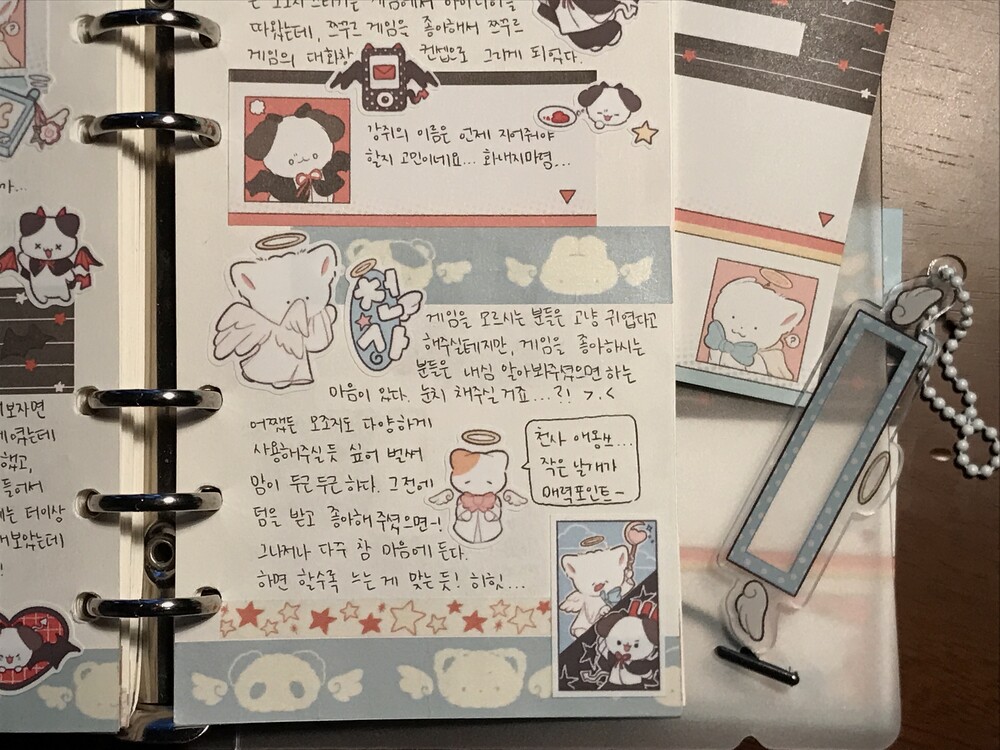 따왔는데, 쯔꾸르 게임을 좋아해서 쯔꾸르
게임의 대화창 컨셉으로 그리게 되었다.
강쥐의 이름은 언제 지어줘야
할지 고민이네요... 화내지마령...
게임을 모르시는 분들은 고냥 귀엽다고
해주실테지만, 게임을 좋아하시는
분들은 내심 알아봐주셨으면 하는
마음이 있다. 눈치 채주실 거죠...?! >.<
어쨌든 오조지도 다양하게
사용해주실 듯 싶어 벌써
맘이 두근두근 하다. 그전에
덤을 받고 좋아해 주셨으면~!
그나저나 다꾸 참 마음에 든다.
하면 할수록 느는 게 맞는 듯! 히힛...
천사 애옹쓰...
작은 날개가
매력포인트~
가...
보자면
했고,
들어서
는 더이상
해보았는데